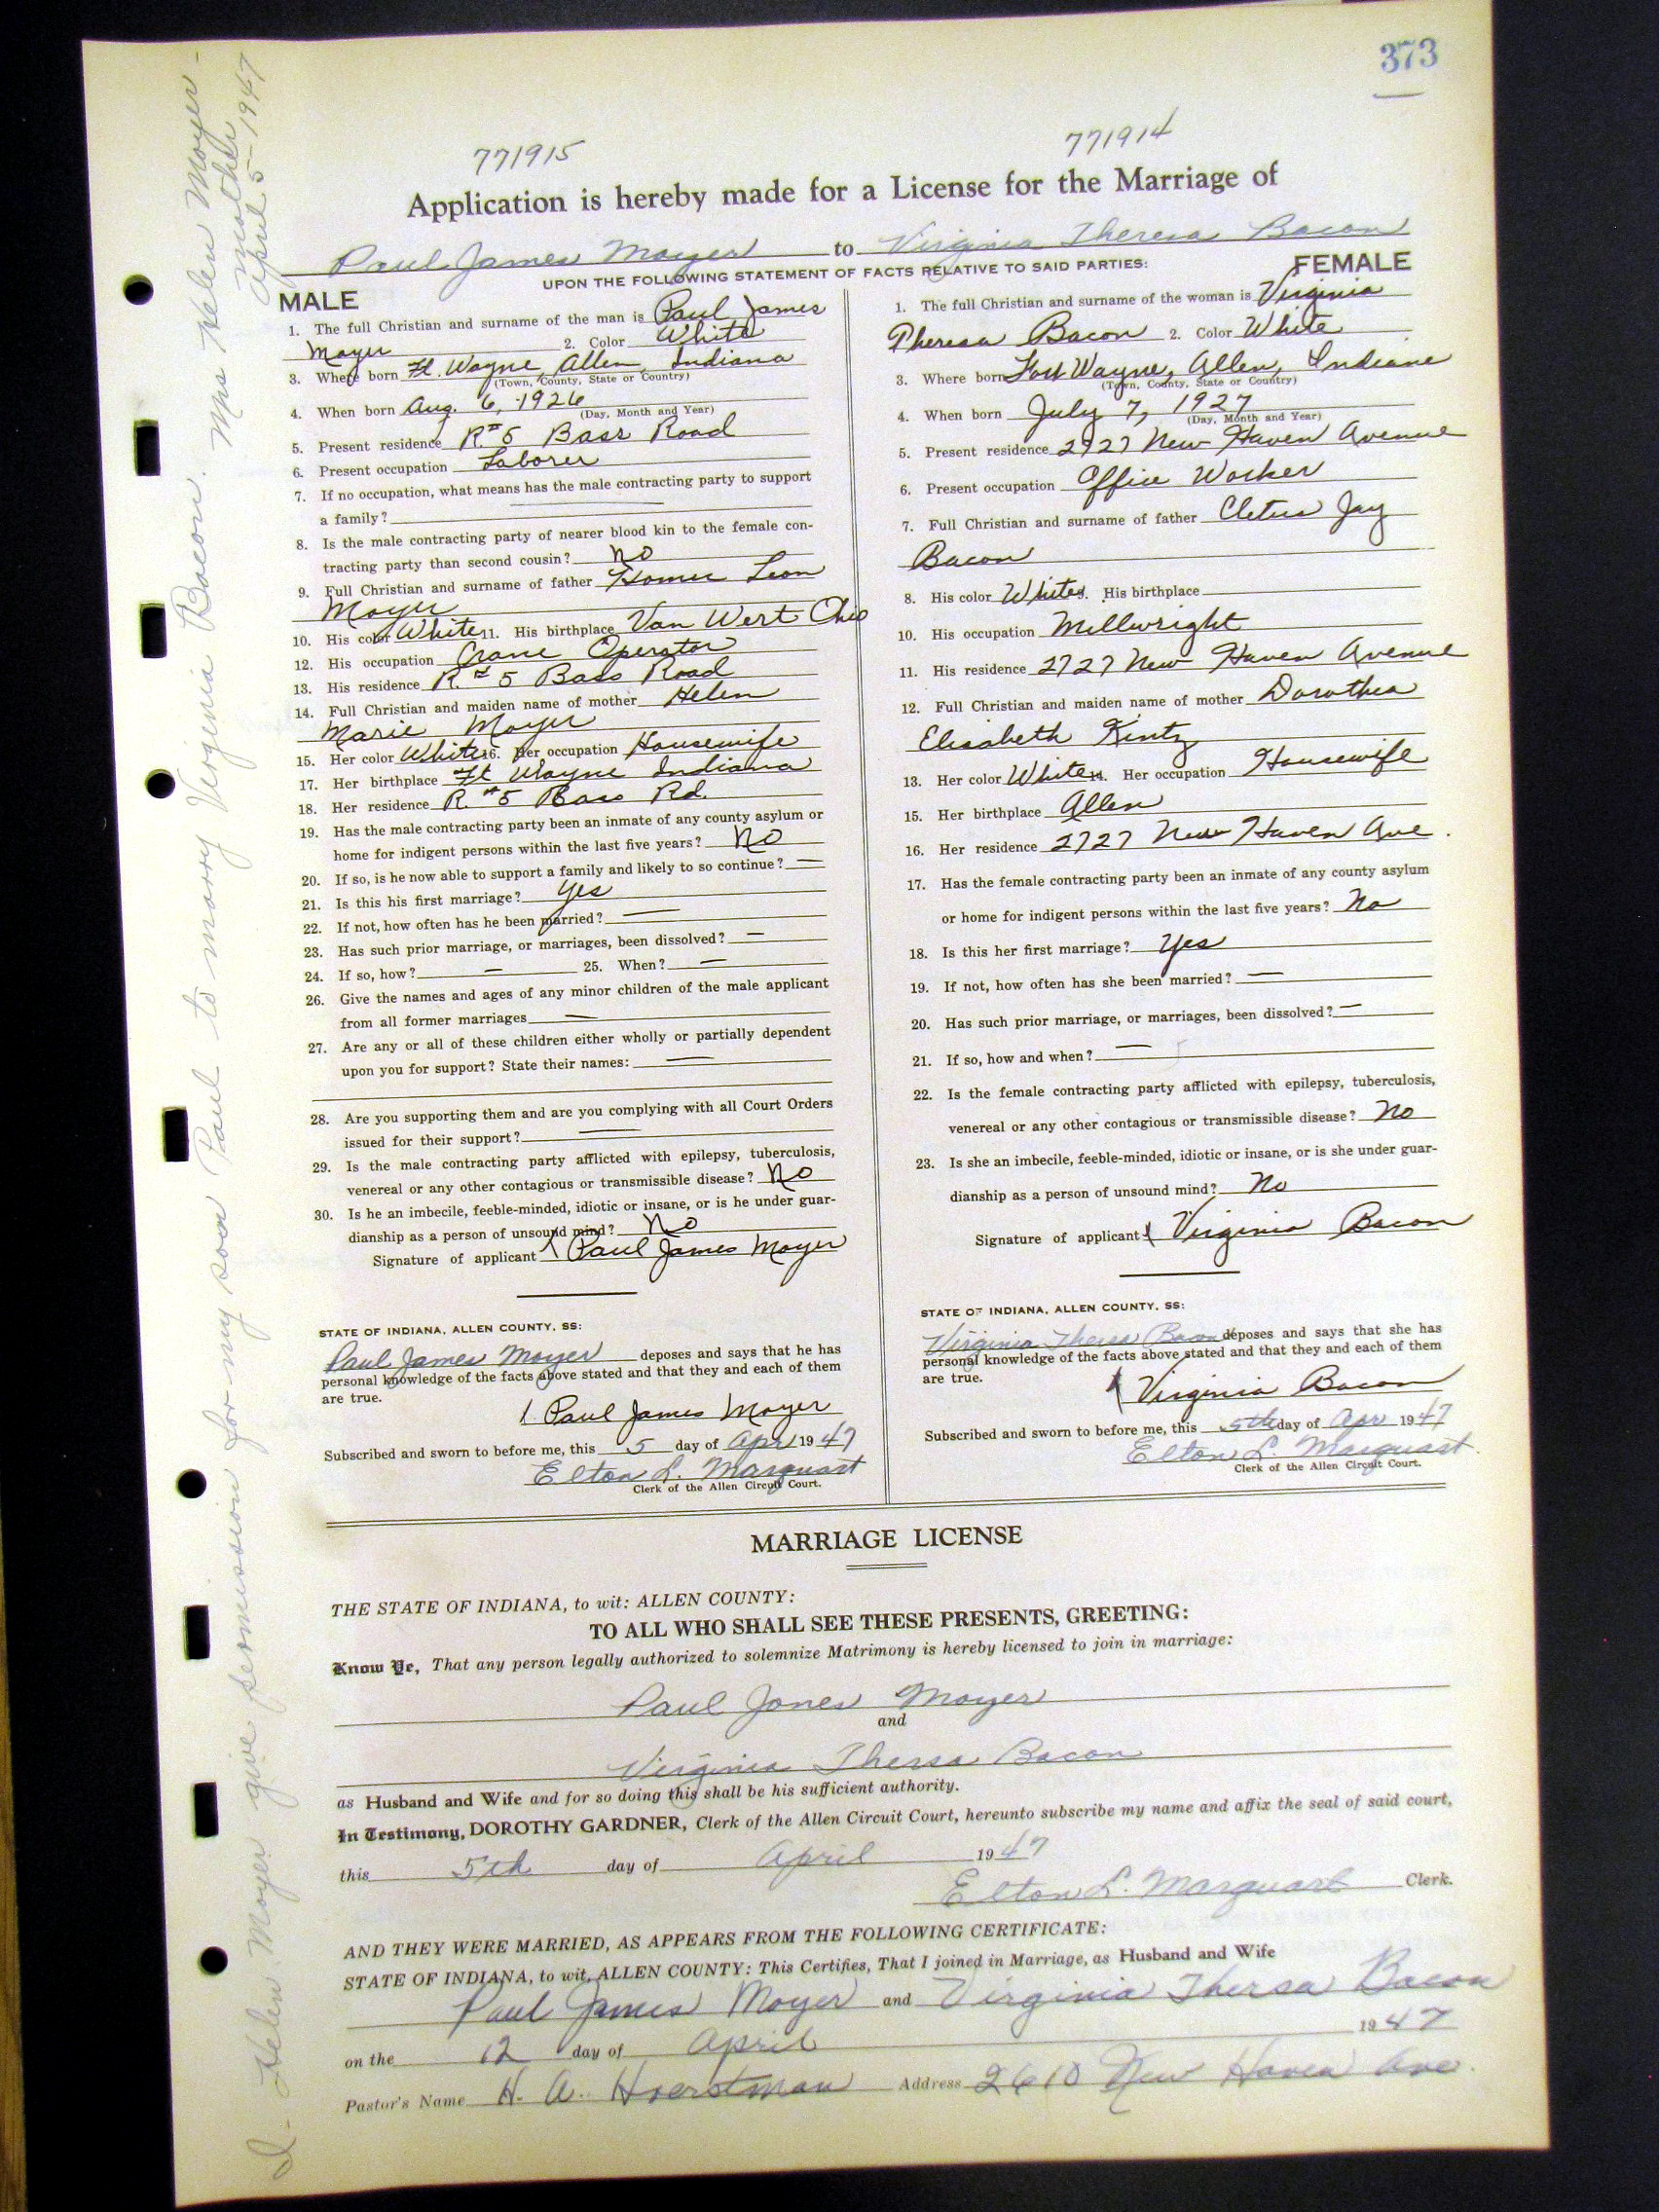 373
771915
771914
Application is hereby made for a License for the Marriage of
Paul James Moyer to Virginia Theresa Bacon
UPON THE FOLLOWING STATEMENT OF FACTS RELATIVE TO SAID PARTIES:
MALE
1. The full Christian and surname of the man is Paul James
Moyer 2. Color White
3. Where born Ft. Wayne, Allen, Indiana
(Town, County, State or Country)
4. When born Aug. 6, 1926
(Day, Month and Year)
5. Present residence R.#5 Bass Road
6. Present occupation Laborer
7. If no occupation, what means has the male contracting party to support
a family?
8. Is the male contracting party of nearer blood kin to the female con-
tracting party than second cousin? No
9. Full Christian and surname of father Homer Leon
Moyer
10. His color White 11. His birthplace Van Wert Ohio
12. His occupation Crane Operator
13. His residence R.#5 Bass Road
14. Full Christian and maiden name of mother Helen
Marie Moyer
15. Her color White 16. Her occupation Housewife
17. Her birthplace Ft Wayne Indiana
18. Her residence R.#5 Bass Rd.
19. Has the male contracting party been an inmate of any county asylum or
home for indigent persons within the last five years? No
20. If so, is he now able to support a family and likely to so continue? —
21. Is this his first marriage? Yes
22. If not, how often has he been married? —
23. Has such prior marriage, or marriages, been dissolved? —
24. If so, how? — 25. When? —
26. Give the names and ages of any minor children of the male applicant
from all former marriages —
27. Are any or all of these children either wholly or partially dependent
upon you for support? State their names: —
28. Are you supporting them and are you complying with all Court Orders
issued for their support? —
29. Is the male contracting party afflicted with epilepsy, tuberculosis,
venereal or any other contagious or transmissible disease? No
30. Is he an imbecile, feeble-minded, idiotic or insane, or is he under guar-
dianship as a person of unsound mind? No
Signature of applicant Paul James Moyer
STATE OF INDIANA, ALLEN COUNTY, SS:
Paul James Moyer deposes and says that he has
personal knowledge of the facts above stated and that they and each of them
are true.
Paul James Moyer
Subscribed and sworn to before me, this 5 day of Apr 1947
Elton L. Marquart
Clerk of the Allen Circuit Court.
FEMALE
1. The full Christian and surname of the woman is Virginia
Theresa Bacon 2. Color White
3. Where born Fort Wayne, Allen, Indiana
(Town, County, State or Country)
4. When born July 7, 1927
(Day, Month and Year)
5. Present residence 2727 New Haven Avenue
6. Present occupation Office Worker
7. Full Christian and surname of father Cletus Jay
Bacon
8. His color White 9. His birthplace
10. His occupation Millwright
11. His residence 2727 New Haven Avenue
12. Full Christian and maiden name of mother Dorothea
Elisabeth Kintz
13. Her color White 14. Her occupation Housewife
15. Her birthplace Allen
16. Her residence 2727 New Haven Ave.
17. Has the female contracting party been an inmate of any county asylum
or home for indigent persons within the last five years? No
18. Is this her first marriage? Yes
19. If not, how often has she been married? —
20. Has such prior marriage, or marriages, been dissolved? —
21. If so, how and when? —
22. Is the female contracting party afflicted with epilepsy, tuberculosis,
venereal or any other contagious or transmissible disease? No
23. Is she an imbecile, feeble-minded, idiotic or insane, or is she under guar-
dianship as a person of unsound mind? No
Signature of applicant Virginia Bacon
STATE OF INDIANA, ALLEN COUNTY, SS:
Virginia Theresa Bacon deposes and says that she has
personal knowledge of the facts above stated and that they and each of them
are true.
Virginia Bacon
Subscribed and sworn to before me, this 5th day of Apr 1947
Elton L. Marquart
Clerk of the Allen Circuit Court.
MARRIAGE LICENSE
THE STATE OF INDIANA, to wit: ALLEN COUNTY:
TO ALL WHO SHALL SEE THESE PRESENTS, GREETING:
Know Ye, That any person legally authorized to solemnize Matrimony is hereby licensed to join in marriage:
Paul Jones Moyer
and
Virginia Thersa Bacon
as Husband and Wife and for so doing this shall be his sufficient authority.
In Testimony, DOROTHY GARDNER, Clerk of the Allen Circuit Court, hereunto subscribe my name and affix the seal of said court,
this 5th day of April 1947
Elton L. Marquart Clerk.
AND THEY WERE MARRIED, AS APPEARS FROM THE FOLLOWING CERTIFICATE:
STATE OF INDIANA, to wit, ALLEN COUNTY: This Certifies, That I joined in Marriage, as Husband and Wife
Paul James Moyer and Virginia Thersa Bacon
on the 12 day of April 1947
Pastor's Name H. A. Hoerstman Address 2610 New Haven Ave.
I - Helen Moyer give permission for my son Paul to marry Virginia Bacon. Mrs Helen Moyer -
Mother
April 5 - 1947